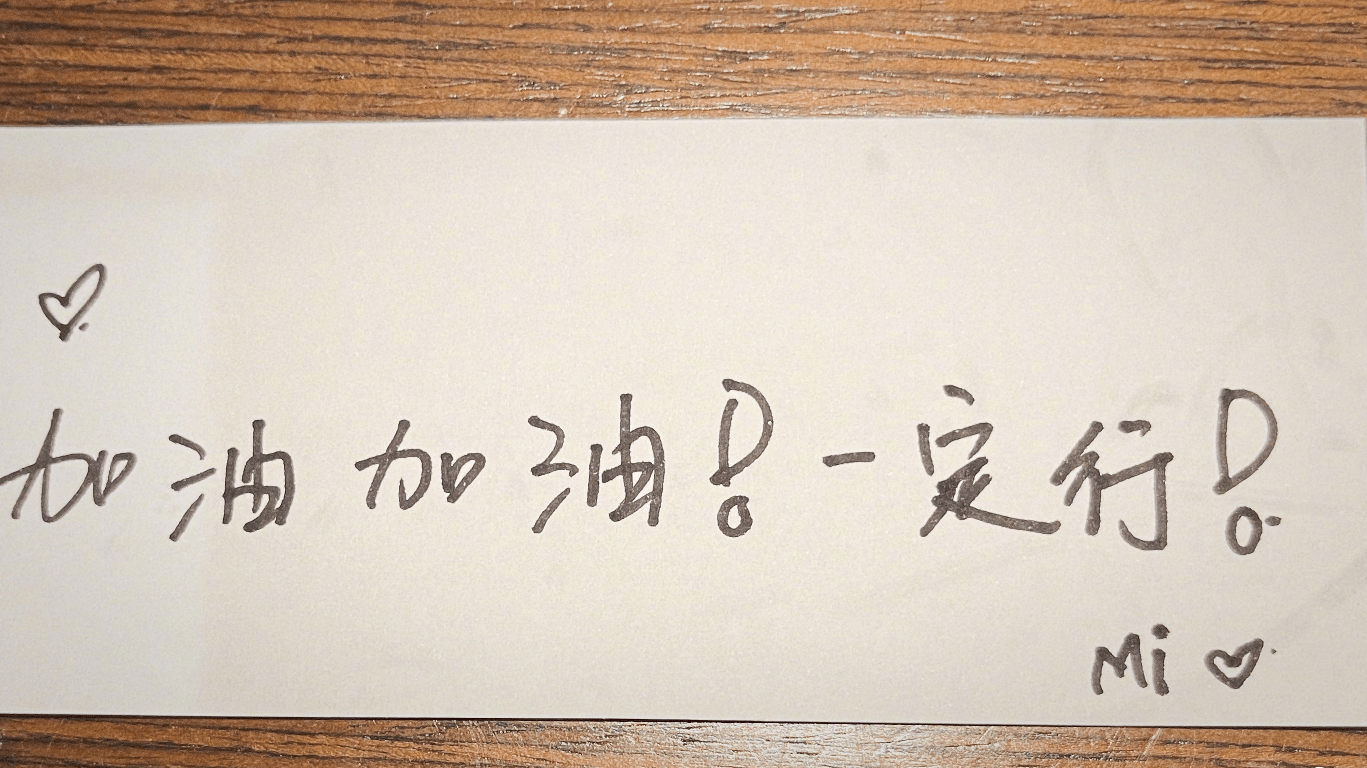 ♡
加油加油!一定行!
Mi ♡